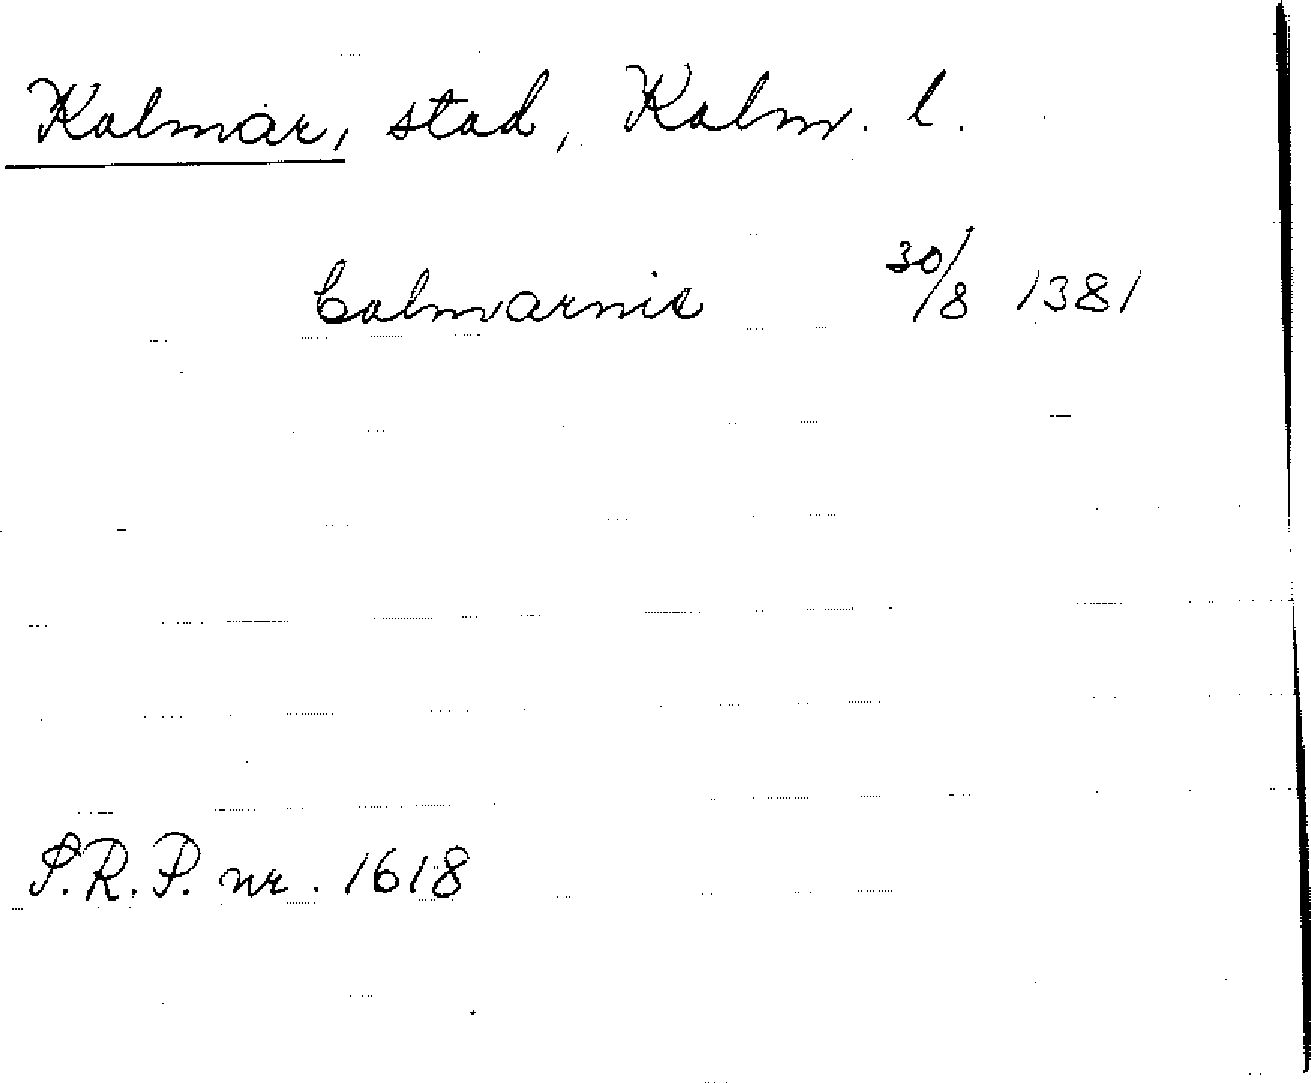 Kalmar, stad, Kalm. l.
Calmarnis 30/8 1381
S.R.P. nr. 1618